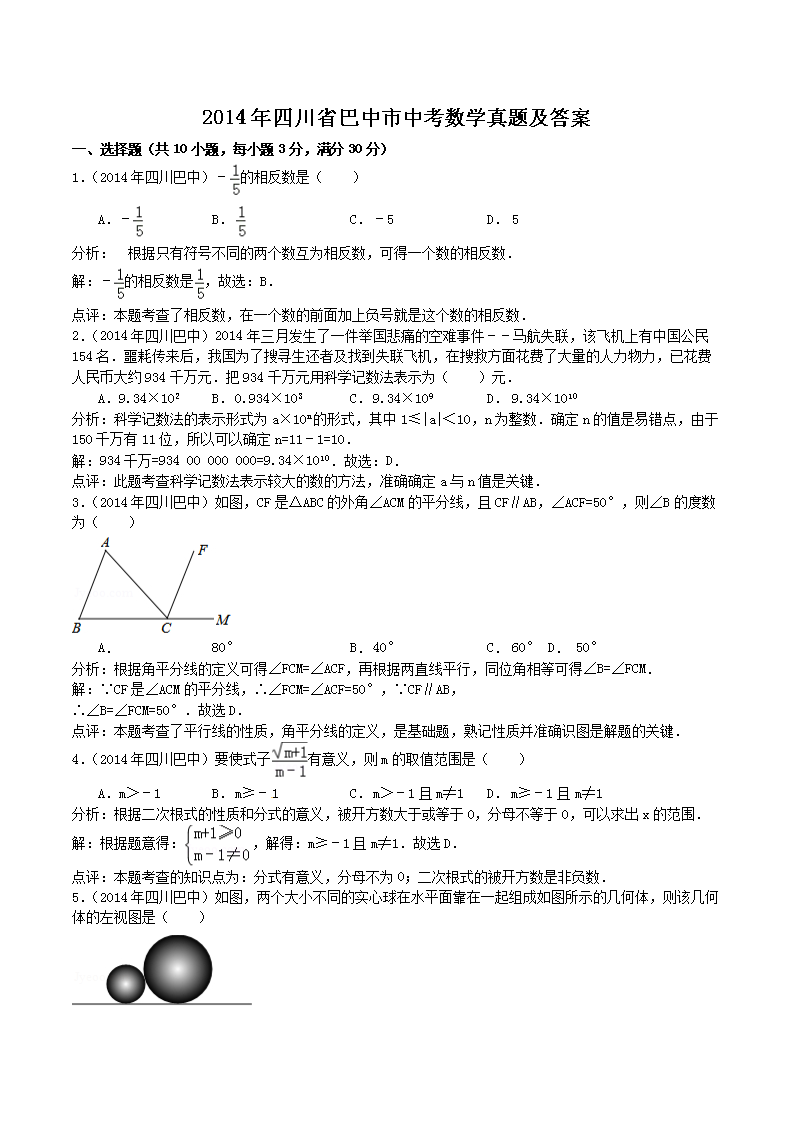 2014年四川省巴中市中考数学真题及答案
一、选择题（共10小题，每小题3分，满分30分）
1.（2014年四川巴中）﹣1/5的相反数是（　　）
A.﹣1/5 B. 1/5 C. ﹣5 D. 5
分析：　根据只有符号不同的两个数互为相反数，可得一个数的相反数.
解：﹣1/5的相反数是1/5，故选：B.
点评：本题考查了相反数，在一个数的前面加上负号就是这个数的相反数.
2.（2014年四川巴中）2014年三月发生了一件举国悲痛的空难事件﹣﹣马航失联，该飞机上有中国公民
154名．噩耗传来后，我国为了搜寻生还者及找到失联飞机，在搜救方面花费了大量的人力物力，已花费
人民币大约934千万元．把934千万元用科学记数法表示为（　　）元．
A. 9.34×10² B. 0.934×10³ C. 9.34×10⁹ D. 9.34×10¹⁰
分析：科学记数法的表示形式为a×10ⁿ的形式，其中1≤|a|＜10，n为整数．确定n的值是易错点，由于
150千万有11位，所以可以确定n=11﹣1=10．
解：934千万=934 00 000 000=9.34×10¹⁰．故选：D．
点评：此题考查科学记数法表示较大的数的方法，准确确定a与n值是关键．
3.（2014年四川巴中）如图，CF是△ABC的外角∠ACM的平分线，且CF∥AB，∠ACF=50°，则∠B的度数
为（　　）
A F
B C M
A. 80° B. 40° C. 60° D. 50°
分析：根据角平分线的定义可得∠FCM=∠ACF，再根据两直线平行，同位角相等可得∠B=∠FCM．
解：∵CF是∠ACM的平分线，∴∠FCM=∠ACF=50°，∵CF∥AB，
∴∠B=∠FCM=50°．故选D．
点评：本题考查了平行线的性质，角平分线的定义，是基础题，熟记性质并准确识图是解题的关键．
4.（2014年四川巴中）要使式子√(m+1)/(m﹣1)有意义，则m的取值范围是（　　）
A. m＞﹣1 B. m≥﹣1 C. m＞﹣1且m≠1 D. m≥﹣1且m≠1
分析：根据二次根式的性质和分式的意义，被开方数大于或等于0，分母不等于0，可以求出x的范围．
解：根据题意得：{m+1≥0 m﹣1≠0，解得：m≥﹣1且m≠1．故选D．
点评：本题考查的知识点为：分式有意义，分母不为0；二次根式的被开方数是非负数．
5.（2014年四川巴中）如图，两个大小不同的实心球在水平面靠在一起组成如图所示的几何体，则该几何
体的左视图是（　　）